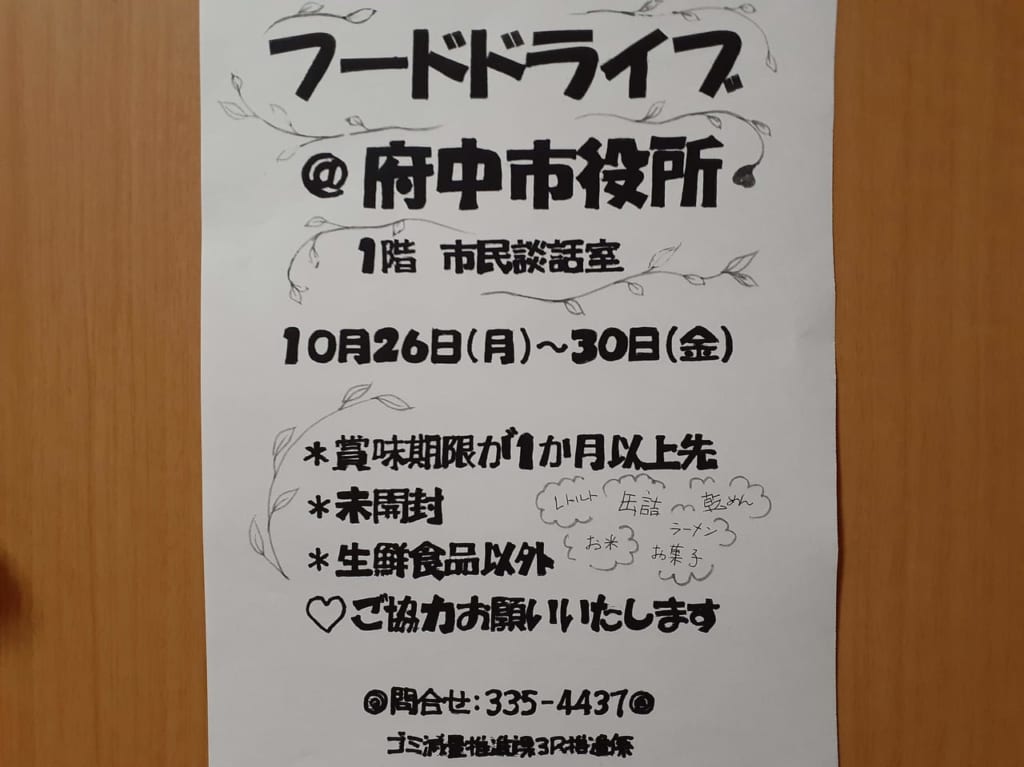 フードドライブ
@府中市役所
1階 市民談話室
10月26日(月)~30日(金)
*賞味期限が1か月以上先
*未開封
レトルト 缶詰 乾めん
ラーメン
お米 お菓子
*生鮮食品以外
♡ご協力お願いいたします
@問合せ:335-4437@
ゴミ減量推進課3R推進係